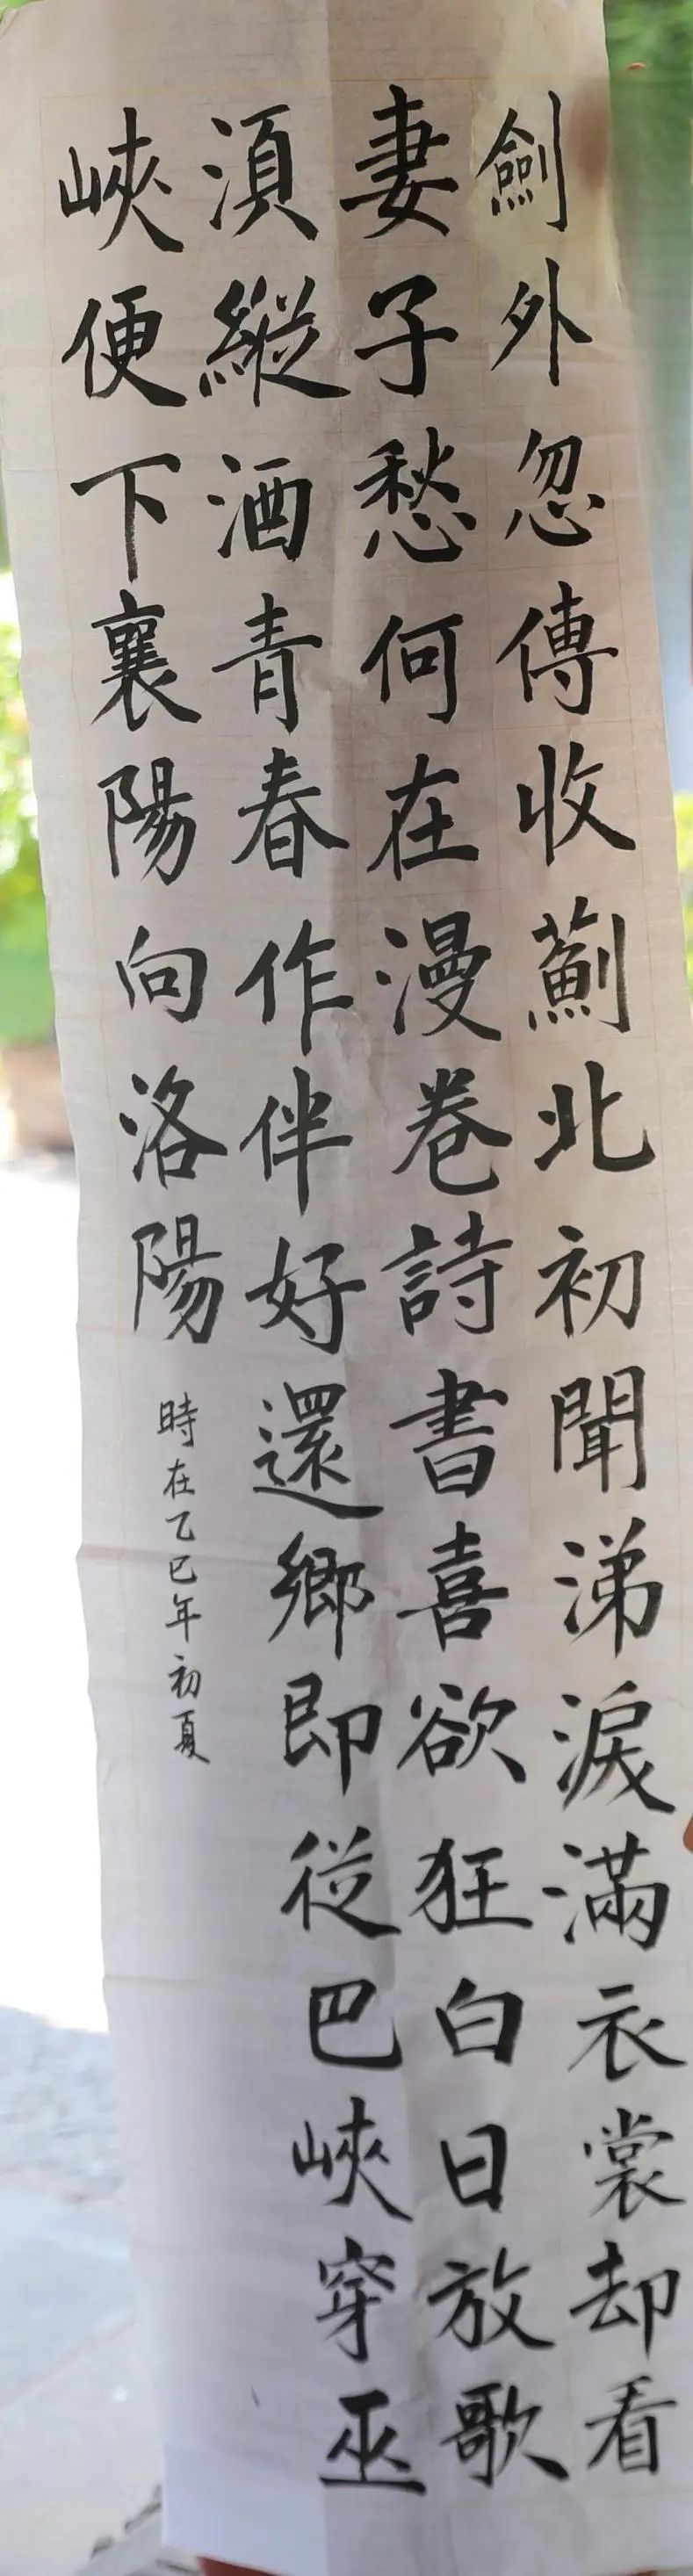 劍外忽傳收薊北初聞涕淚滿衣裳却看
妻子愁何在漫卷詩書喜欲狂白日放歌
湏縱酒青春作伴好還鄉即從巴峽穿巫
峽便下襄陽向洛陽
時在乙巳年初夏